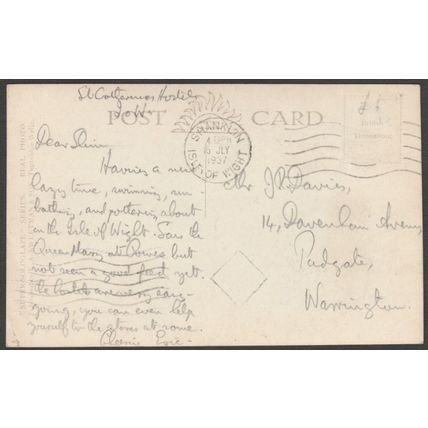 St Catherines Hostel
I.o.W.
POST CARD
SHANKLIN
15 JLY
1937
ISLE OF WIGHT
£5
Dear Jim,
Having a nice
lazy time, swimming, sun-
bathing, and pottering about
on the Isle of Wight. Saw the
Queen Mary at Cowes but
not seen a good feed yet.
The hostels are very easy
going, you can even help
yourself to the stores at some.
Cheerio Eric.
Mr J. R. Davies,
14, Davenham Avenue,
Padgate,
Warrington.
SERIES. REAL PHOTO.